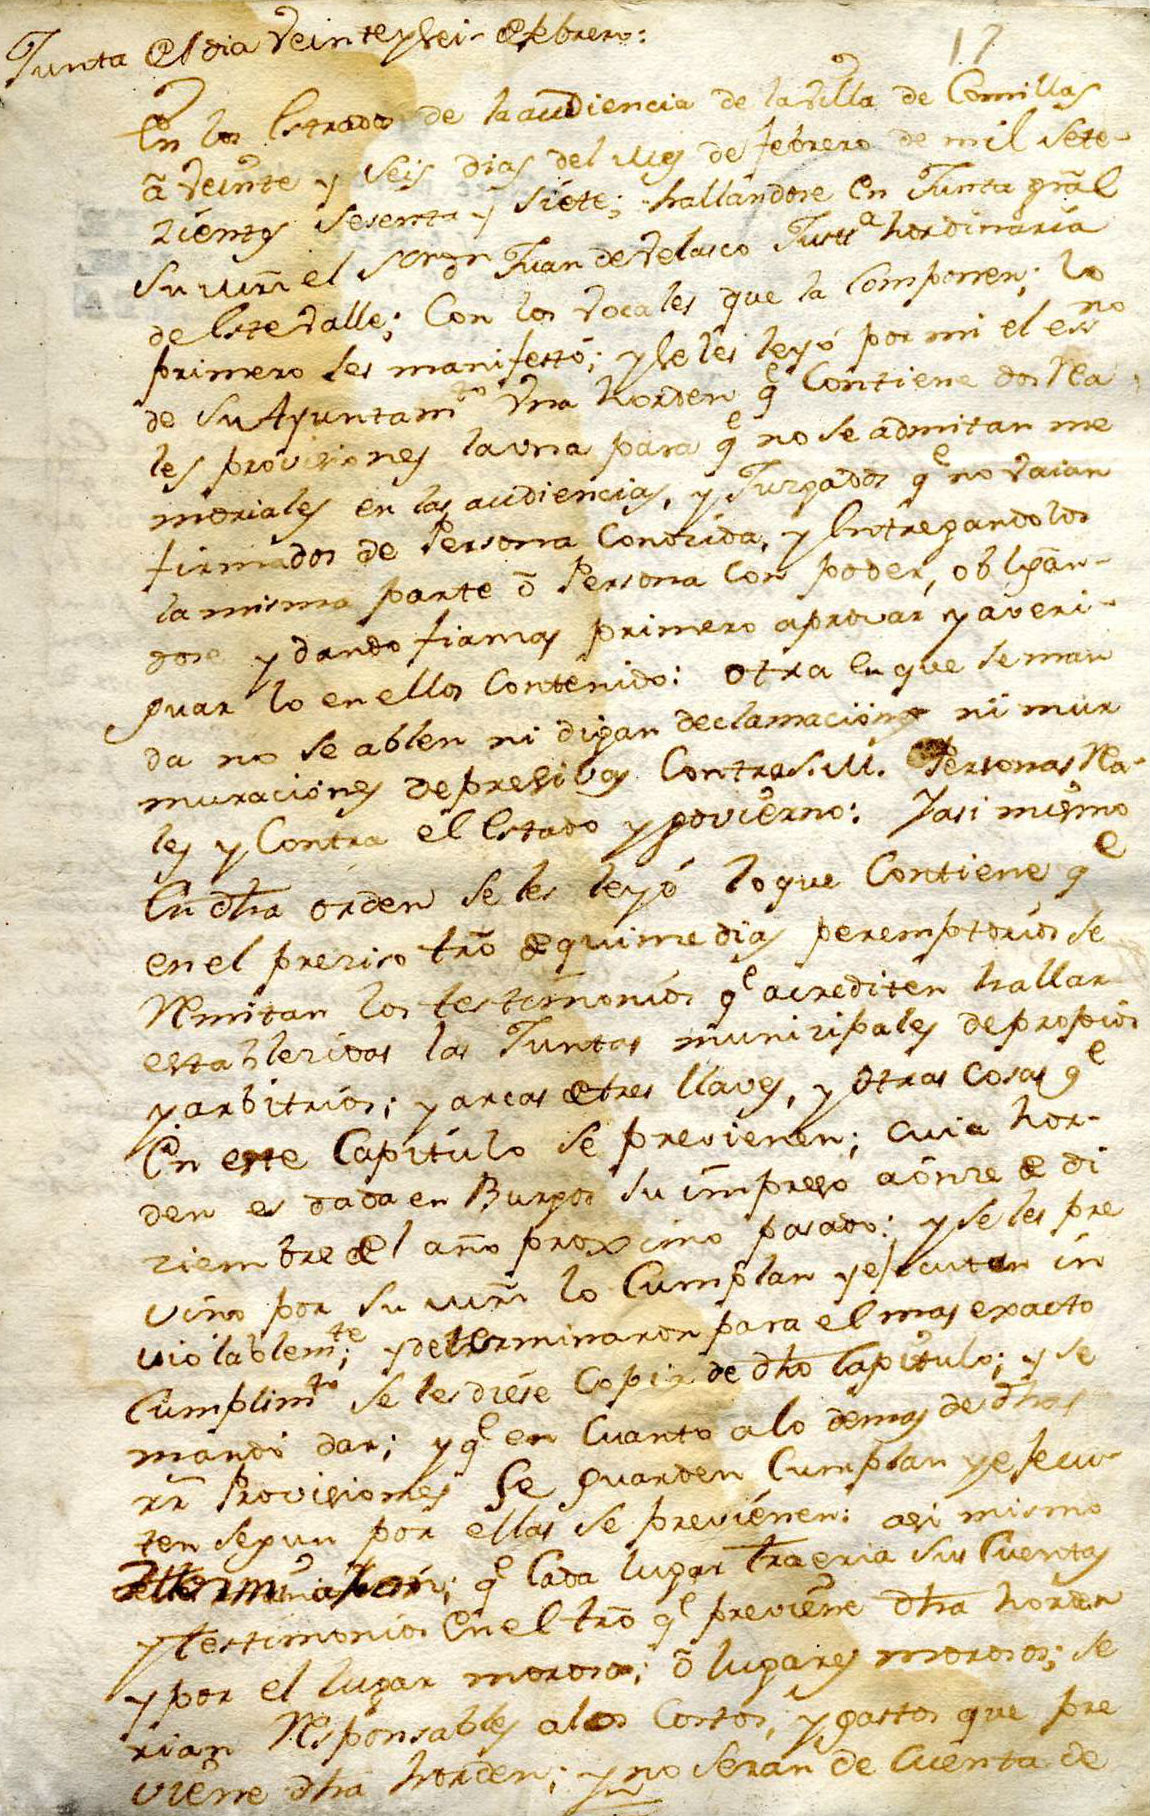 Junta el dia veinte y seis de febrero:
17
En los Estrados de la audiencia de la villa de Comillas
â veinte y seis dias del mes de febrero de mil sete-
zientos sesenta y siete; hallandose en Junta grãl
su mrñ el señor Dn Juan de Velasco Justtª hordinaria
de este valle; con los vocales que la componen; lo
primero les manifestó; y se les leyó por mi el essno
de su Ayuntamto vna horden qe contiene dos Rea
les provisiones la vna para qe no se admitan me
moriales en las audiencias, y Juzgados qe no vaian
firmados de Persona conozida, y entregandolos
la misma parte ô Persona con poder, obligan-
dose y dando fianzas primero aprovar y averi-
guar lo en ellos contenido: otra en que se man
da no se ablen ni digan declamaciones ni mur
muraciones depresivas contra S. M. Personas Rea-
les y contra el Estado y govierno: Y asi mismo
en dha orden se les leyó lo que contiene qe
en el preziso trõ de quinze dias peremptorios se
Remitan los testimonios qe acrediten hallar
establezidas las Juntas munizipales de propios
y arbitrios; y arcas de tres llaves, y otras cosas qe
en este capitulo se previenen; cuia hor-
den es dada en Burgos su impreso a onze de di
ziembre del año proximo pasado: y se les pre
vino por su mrñ lo cumplan y ejecuten in
violablemte; y determinaron para el mas exacto
cumplimto se les diese copia de dho capitulo; y se
mandó dar; y qe en cuanto a lo demas de dhas
rr Provisiones se guarden cumplan y ejecu-
ten segun por ellas se previenen: asi mismo
determinaron; qe cada lugar traeria sus cuentas
y testimonios en el trõ qe previene dha horden
y por el lugar moroso; ô lugares morosos; se
rian Responsables a los costos, y gastos que pre
viene dha horden; y no serán de cuenta de